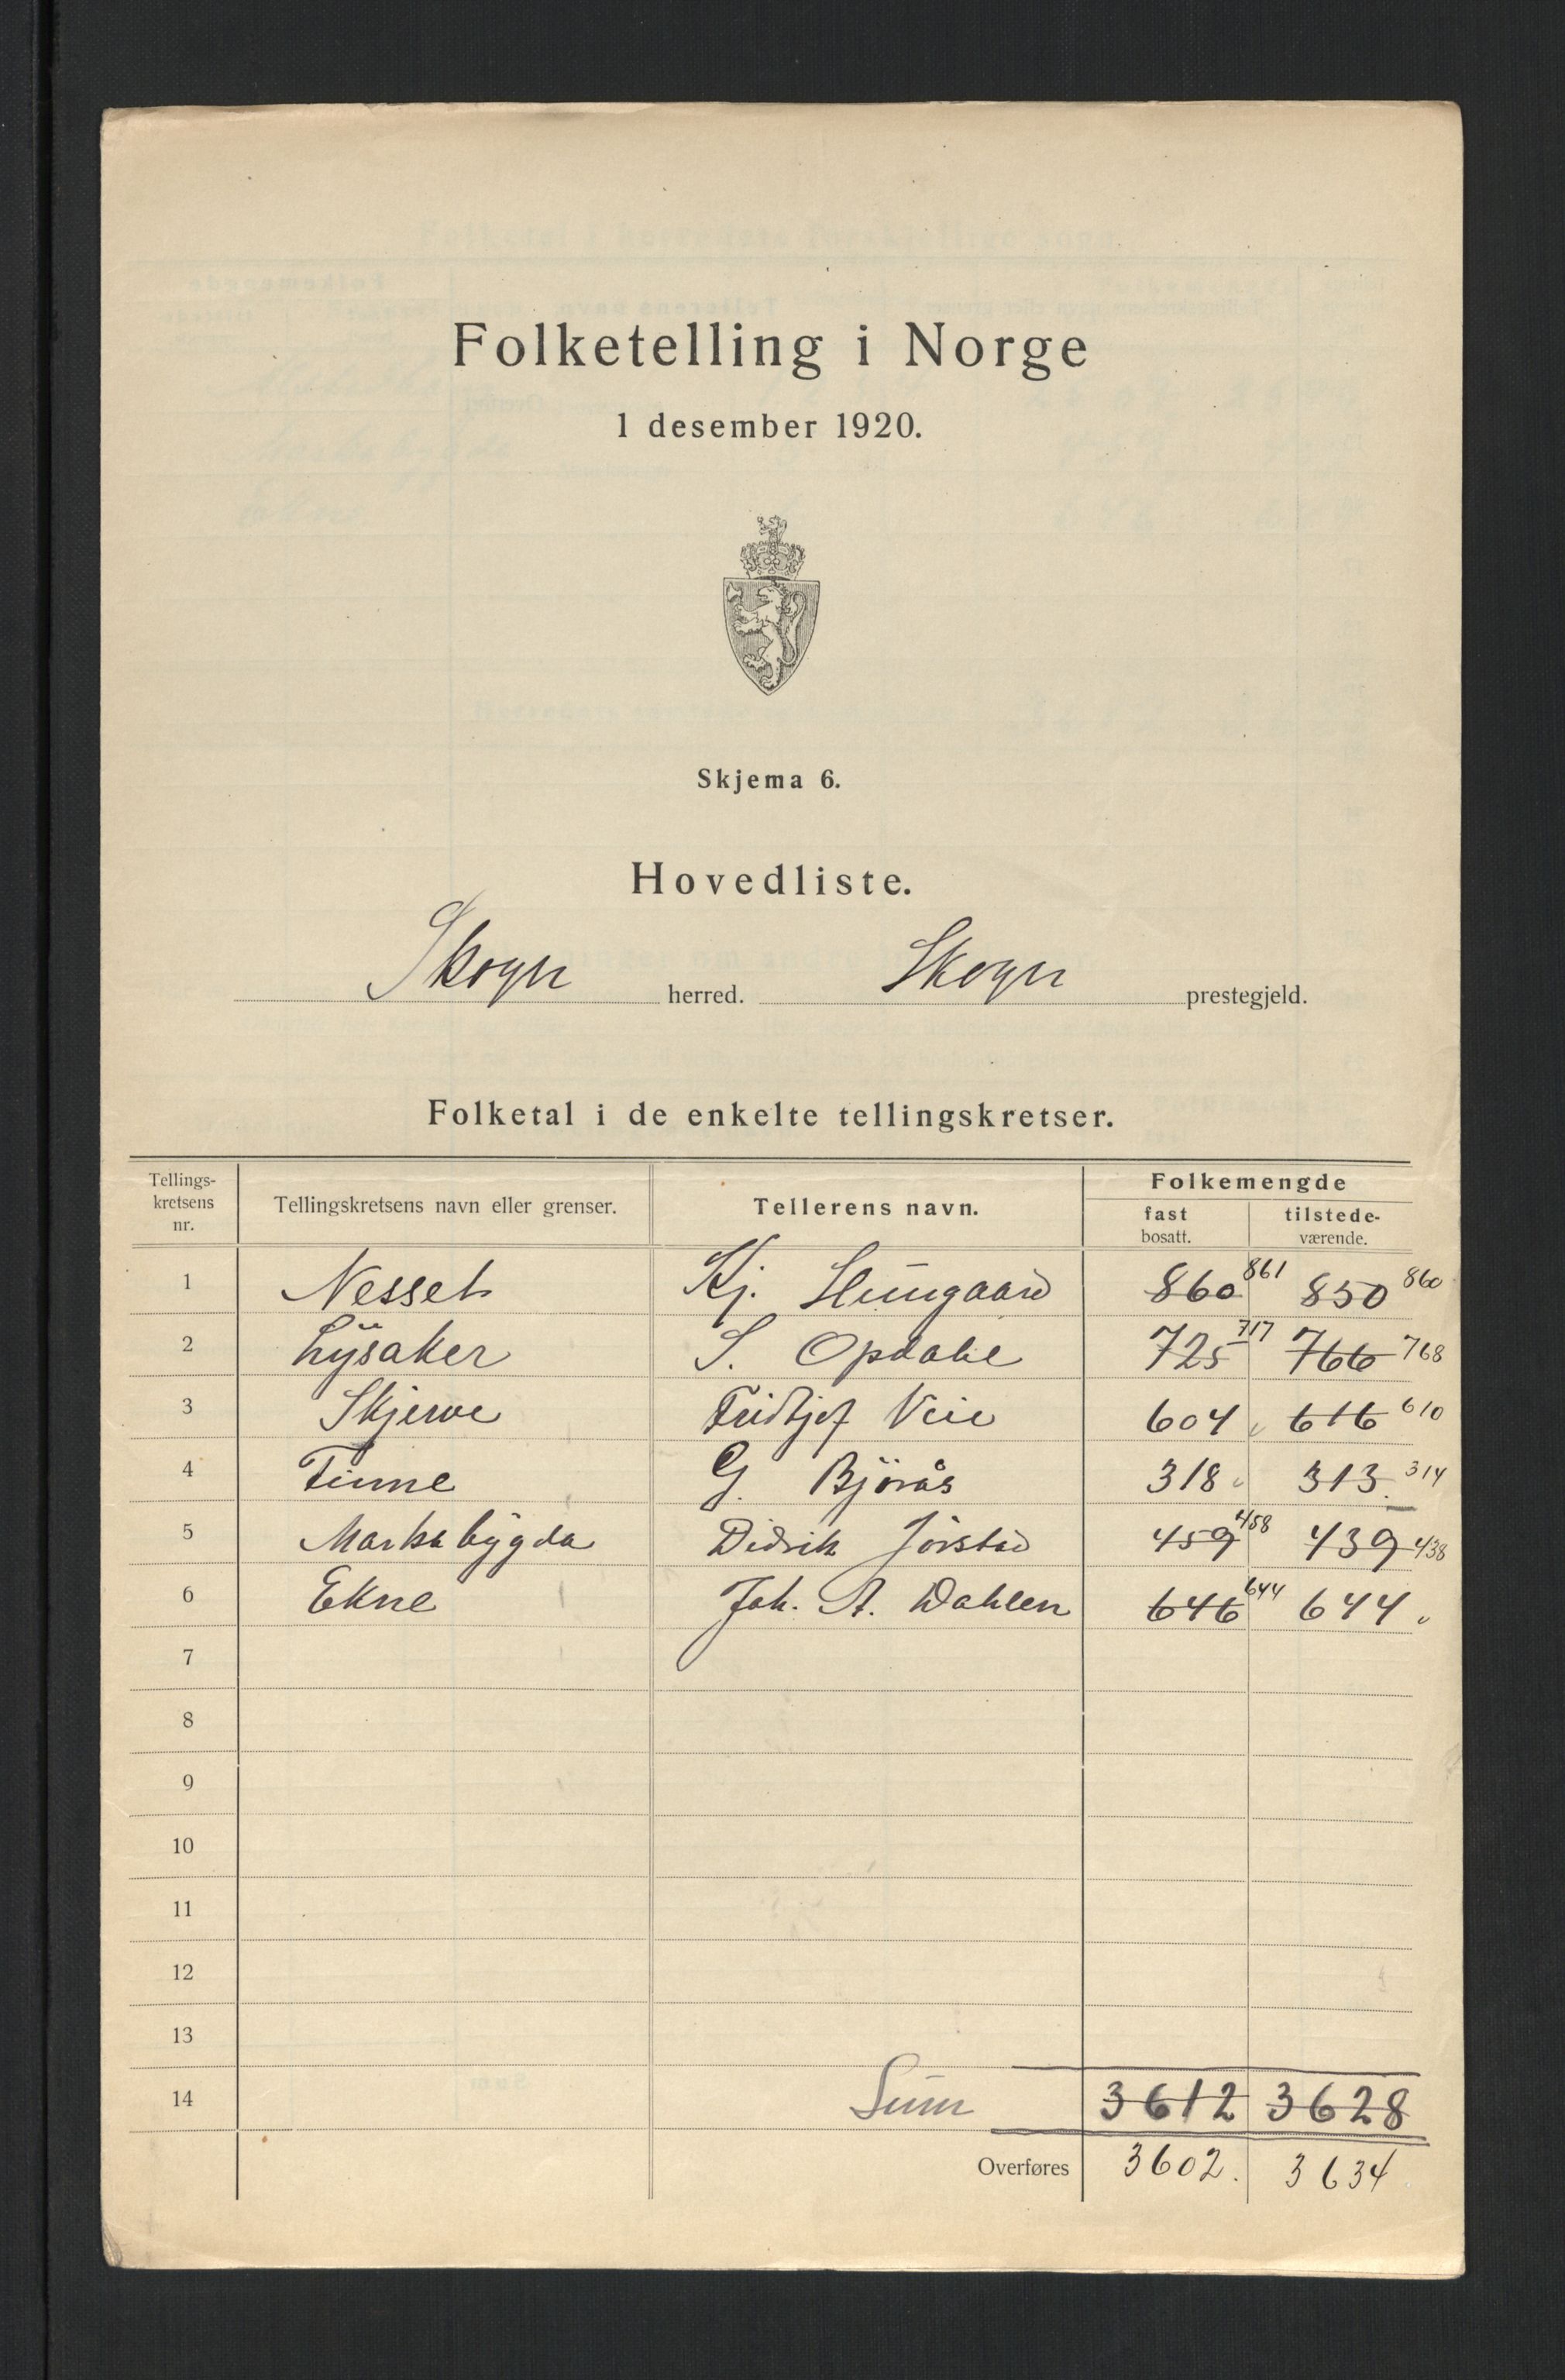 Folketelling i Norge
1 desember 1920.
Skjema 6.
Hovedliste.
Skogn herred. Skogn prestegjeld.
Folketal i de enkelte tellingskretser.
Tellings-kretsens nr. Tellingskretsens navn eller grenser. Tellerens navn. Folkemengde
fast bosatt. tilstede-værende.
1 Nesset Kj. 860 861 850 860
2 Lysaker S. Opdahl 725 717 766 768
3 Skjerve Fridtjof Veie 604 616 610
4 Finne G. Bjørås 318 313 314
5 Markabygda Didrik Jørstad 459 458 439 438
6 Ekne Joh. A. Dahlen 646 644 644
7
8
9
10
11
12
13
14 Sum 3612 3628
Overføres 3602. 3634